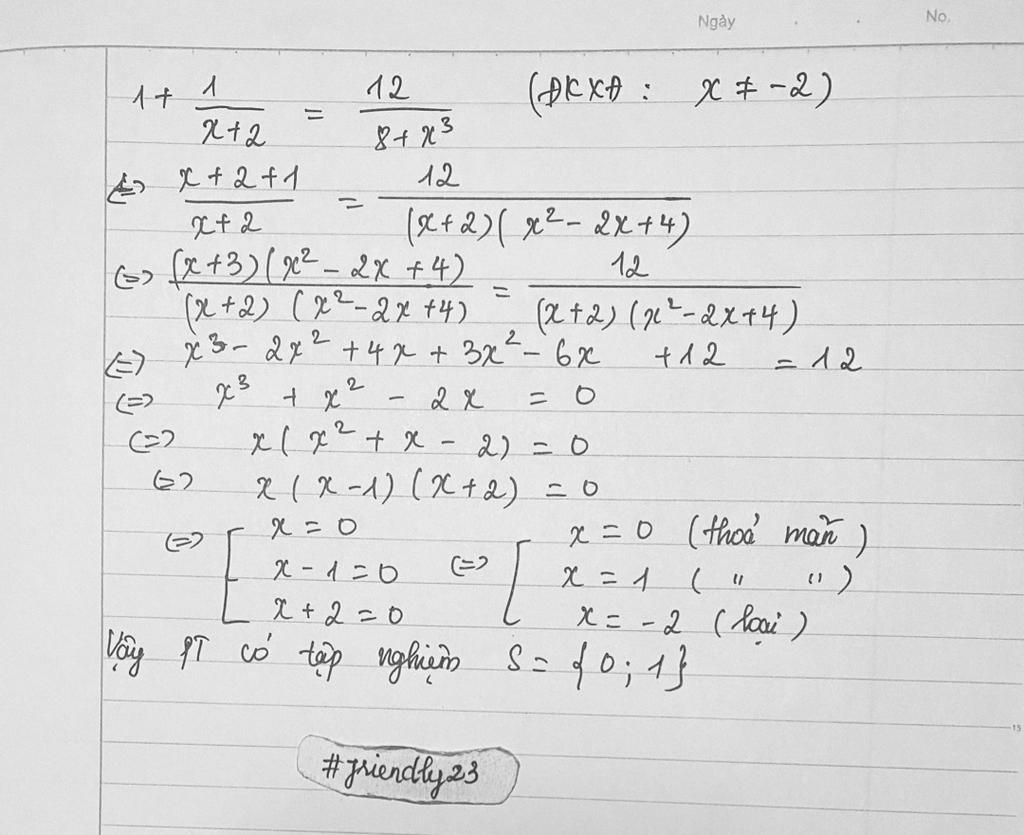 Ngày . . No.
1 + 1/(x+2) = 12/(8+x³) (ĐKXĐ : x ≠ -2)
<=> (x+2+1)/(x+2) = 12/((x+2)(x²-2x+4))
<=> ((x+3)(x²-2x+4))/((x+2)(x²-2x+4)) = 12/((x+2)(x²-2x+4))
<=> x³ - 2x² + 4x + 3x² - 6x + 12 = 12
<=> x³ + x² - 2x = 0
<=> x(x² + x - 2) = 0
<=> x(x-1)(x+2) = 0
<=> [ x = 0 <=> [ x = 0 (thoả mãn)
x - 1 = 0 x = 1 ( " " )
x + 2 = 0 x = -2 (loại)
Vậy PT có tập nghiệm S = {0; 1}
15
#friendly23